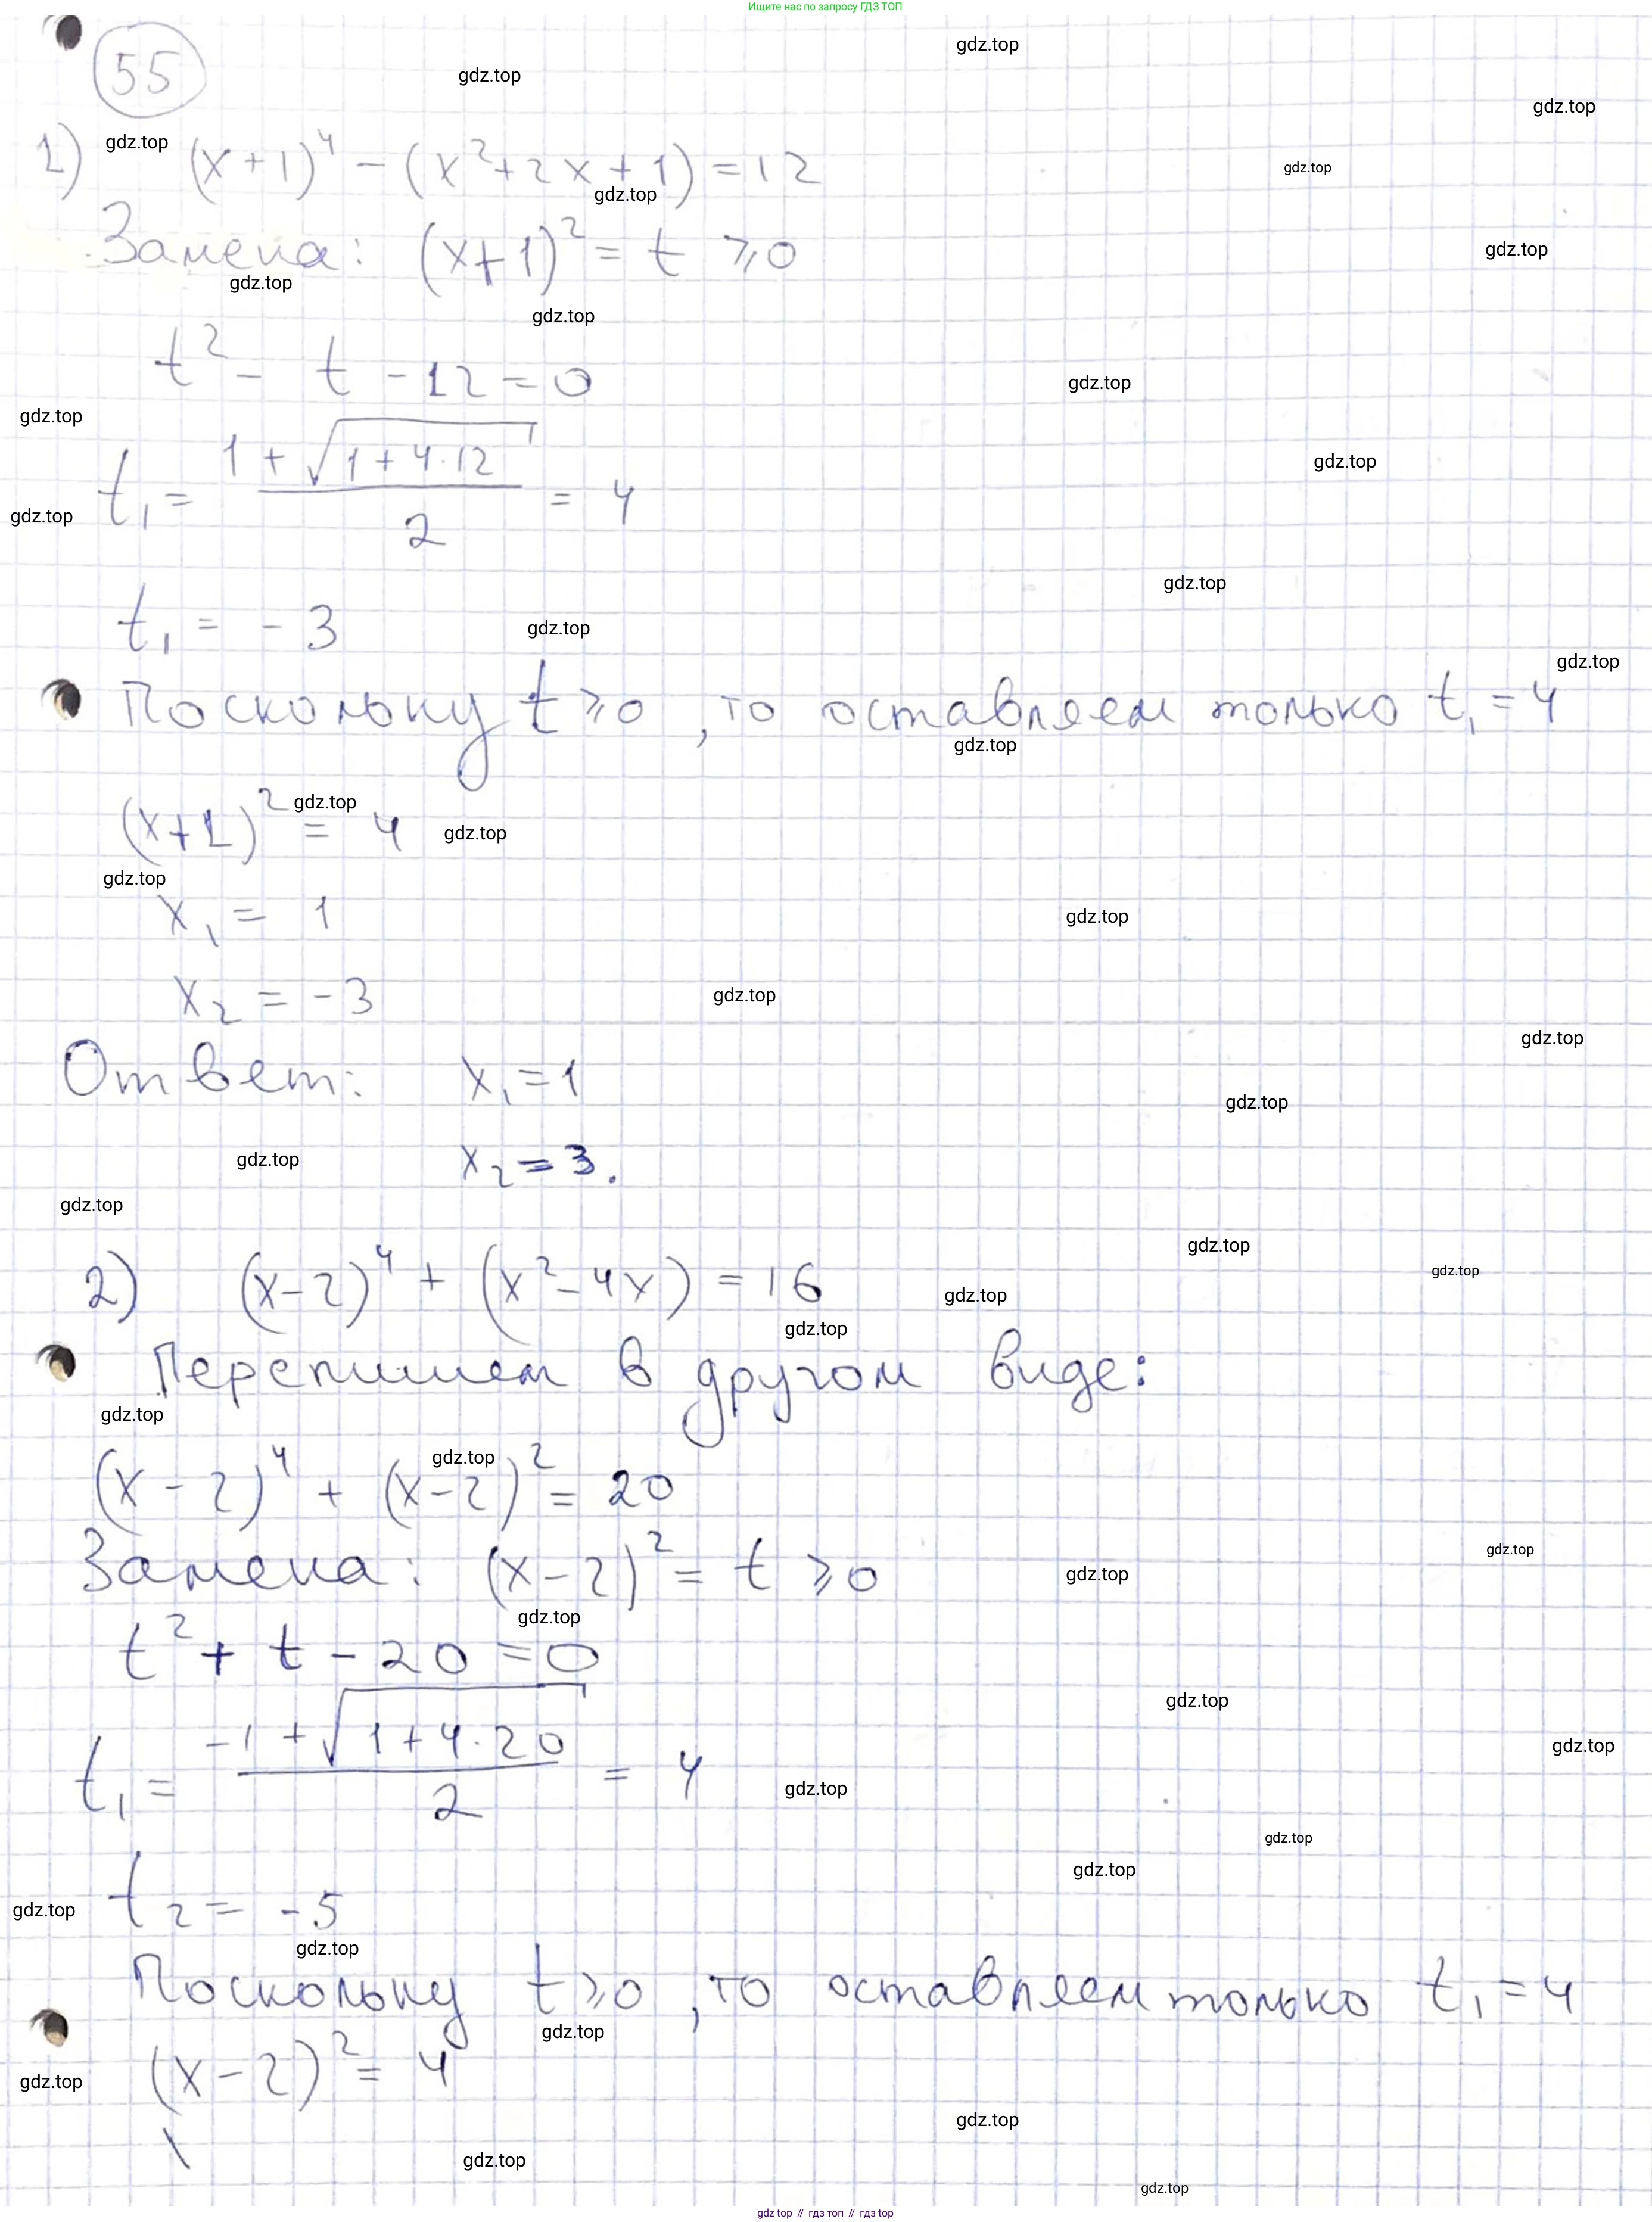 Ищите нас по запросу ГДЗ ТОП
gdz.top
55
gdz.top
gdz.top
1) gdz.top (x+1)⁴ − (x²+2x+1) = 12
gdz.top
gdz.top
Замена: (x+1)² = t ⩾ 0
gdz.top
gdz.top
gdz.top
t² − t − 12 = 0
gdz.top
gdz.top
gdz.top
t₁ = (1 + √(1+4·12)) / 2 = 4
gdz.top
gdz.top
t₁ = −3
gdz.top
gdz.top
Поскольку t ⩾ 0, то оставляем только t₁ = 4
gdz.top
gdz.top
(x+1)² = 4
gdz.top
gdz.top
x₁ = 1
gdz.top
x₂ = −3
gdz.top
gdz.top
Ответ: x₁ = 1
gdz.top
x₂ = 3.
gdz.top
gdz.top
gdz.top
2) (x−2)⁴ + (x²−4x) = 16
gdz.top
gdz.top
gdz.top
Перепишем в другом виде:
gdz.top
gdz.top
(x−2)⁴ + (x−2)² = 20
gdz.top
Замена: (x−2)² = t ⩾ 0
gdz.top
gdz.top
t² + t − 20 = 0
gdz.top
gdz.top
t₁ = (−1 + √(1+4·20)) / 2 = 4
gdz.top
gdz.top
gdz.top
t₂ = −5
gdz.top
gdz.top
Поскольку t ⩾ 0, то оставляем только t₁ = 4
gdz.top
(x−2)² = 4
gdz.top
gdz.top
gdz.top
gdz.top
gdz.top // гдз топ // gdz top